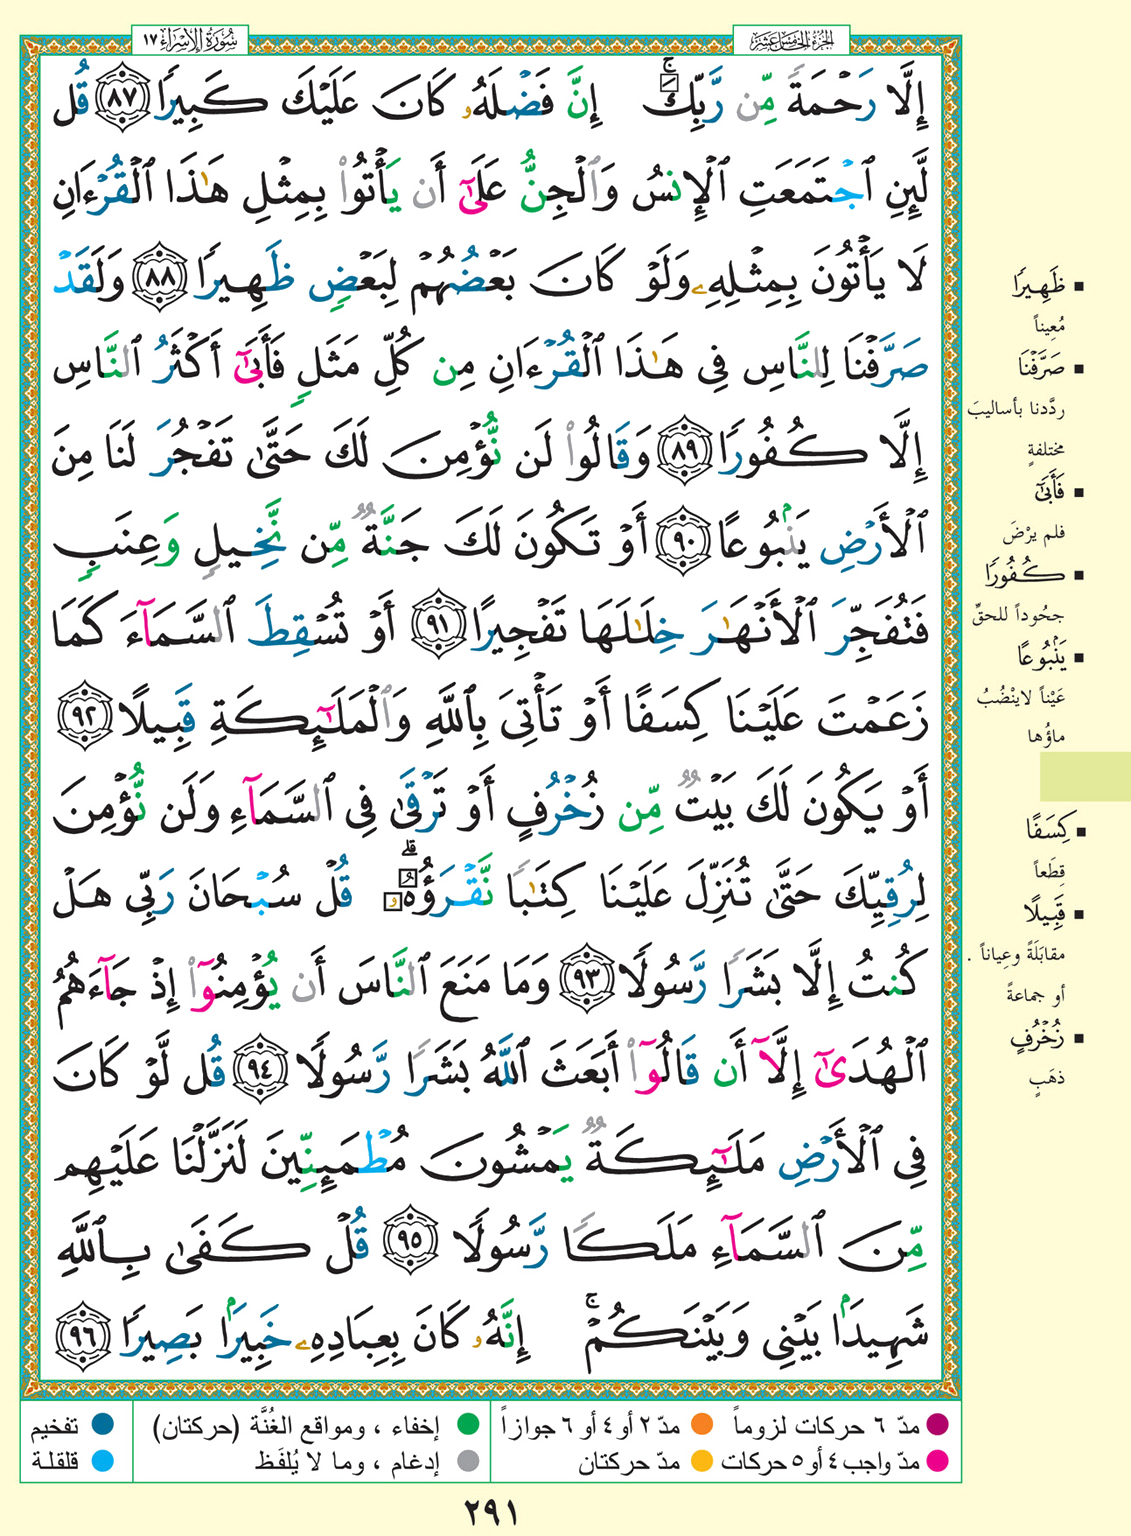 سُورَةُ الإِسْرَاءِ ١٧
الجُزْءُ الخَامِسَ عَشَرَ
إِلَّا رَحْمَةً مِّن رَّبِّكَ ۚ إِنَّ فَضْلَهُۥ كَانَ عَلَيْكَ كَبِيرًا ٨٧ قُل
لَّئِنِ ٱجْتَمَعَتِ ٱلْإِنسُ وَٱلْجِنُّ عَلَىٰٓ أَن يَأْتُوا۟ بِمِثْلِ هَـٰذَا ٱلْقُرْءَانِ
لَا يَأْتُونَ بِمِثْلِهِۦ وَلَوْ كَانَ بَعْضُهُمْ لِبَعْضٍ ظَهِيرًا ٨٨ وَلَقَدْ
صَرَّفْنَا لِلنَّاسِ فِى هَـٰذَا ٱلْقُرْءَانِ مِن كُلِّ مَثَلٍ فَأَبَىٰٓ أَكْثَرُ ٱلنَّاسِ
إِلَّا كُفُورًا ٨٩ وَقَالُوا۟ لَن نُّؤْمِنَ لَكَ حَتَّىٰ تَفْجُرَ لَنَا مِنَ
ٱلْأَرْضِ يَنۢبُوعًا ٩٠ أَوْ تَكُونَ لَكَ جَنَّةٌ مِّن نَّخِيلٍ وَعِنَبٍ
فَتُفَجِّرَ ٱلْأَنْهَـٰرَ خِلَـٰلَهَا تَفْجِيرًا ٩١ أَوْ تُسْقِطَ ٱلسَّمَآءَ كَمَا
زَعَمْتَ عَلَيْنَا كِسَفًا أَوْ تَأْتِىَ بِٱللَّهِ وَٱلْمَلَـٰٓئِكَةِ قَبِيلًا ٩٢
أَوْ يَكُونَ لَكَ بَيْتٌ مِّن زُخْرُفٍ أَوْ تَرْقَىٰ فِى ٱلسَّمَآءِ وَلَن نُّؤْمِنَ
لِرُقِيِّكَ حَتَّىٰ تُنَزِّلَ عَلَيْنَا كِتَـٰبًا نَّقْرَؤُهُۥ ۗ قُلْ سُبْحَانَ رَبِّى هَلْ
كُنتُ إِلَّا بَشَرًا رَّسُولًا ٩٣ وَمَا مَنَعَ ٱلنَّاسَ أَن يُؤْمِنُوٓا۟ إِذْ جَآءَهُمُ
ٱلْهُدَىٰٓ إِلَّآ أَن قَالُوٓا۟ أَبَعَثَ ٱللَّهُ بَشَرًا رَّسُولًا ٩٤ قُل لَّوْ كَانَ
فِى ٱلْأَرْضِ مَلَـٰٓئِكَةٌ يَمْشُونَ مُطْمَئِنِّينَ لَنَزَّلْنَا عَلَيْهِم
مِّنَ ٱلسَّمَآءِ مَلَكًا رَّسُولًا ٩٥ قُلْ كَفَىٰ بِٱللَّهِ
شَهِيدًۢا بَيْنِى وَبَيْنَكُمْ ۚ إِنَّهُۥ كَانَ بِعِبَادِهِۦ خَبِيرًۢا بَصِيرًا ٩٦
ظَهِيرًا
مُعِيناً
صَرَّفْنَا
ردَّدنا بأساليبَ
مختلفةٍ
فَأَبَىٰٓ
فلم يرْضَ
كُفُورًا
جحُوداً للحقِّ
يَنۢبُوعًا
عَيْناً لاينْضُبُ
ماؤُها
كِسَفًا
قِطَعاً
قَبِيلًا
مقابَلَةً وعِياناً .
أو جماعةً
زُخْرُفٍ
ذهَبٍ
مدّ ٦ حركات لزوماً
مدّ ٢ أو ٤ أو ٦ جوازاً
إخفاء ، ومواقع الغُنَّة (حركتان)
تفخيم
مدّ واجب ٤ أو ٥ حركات
مدّ حركتان
إدغام ، وما لا يُلفَظ
قلقلة
٢٩١